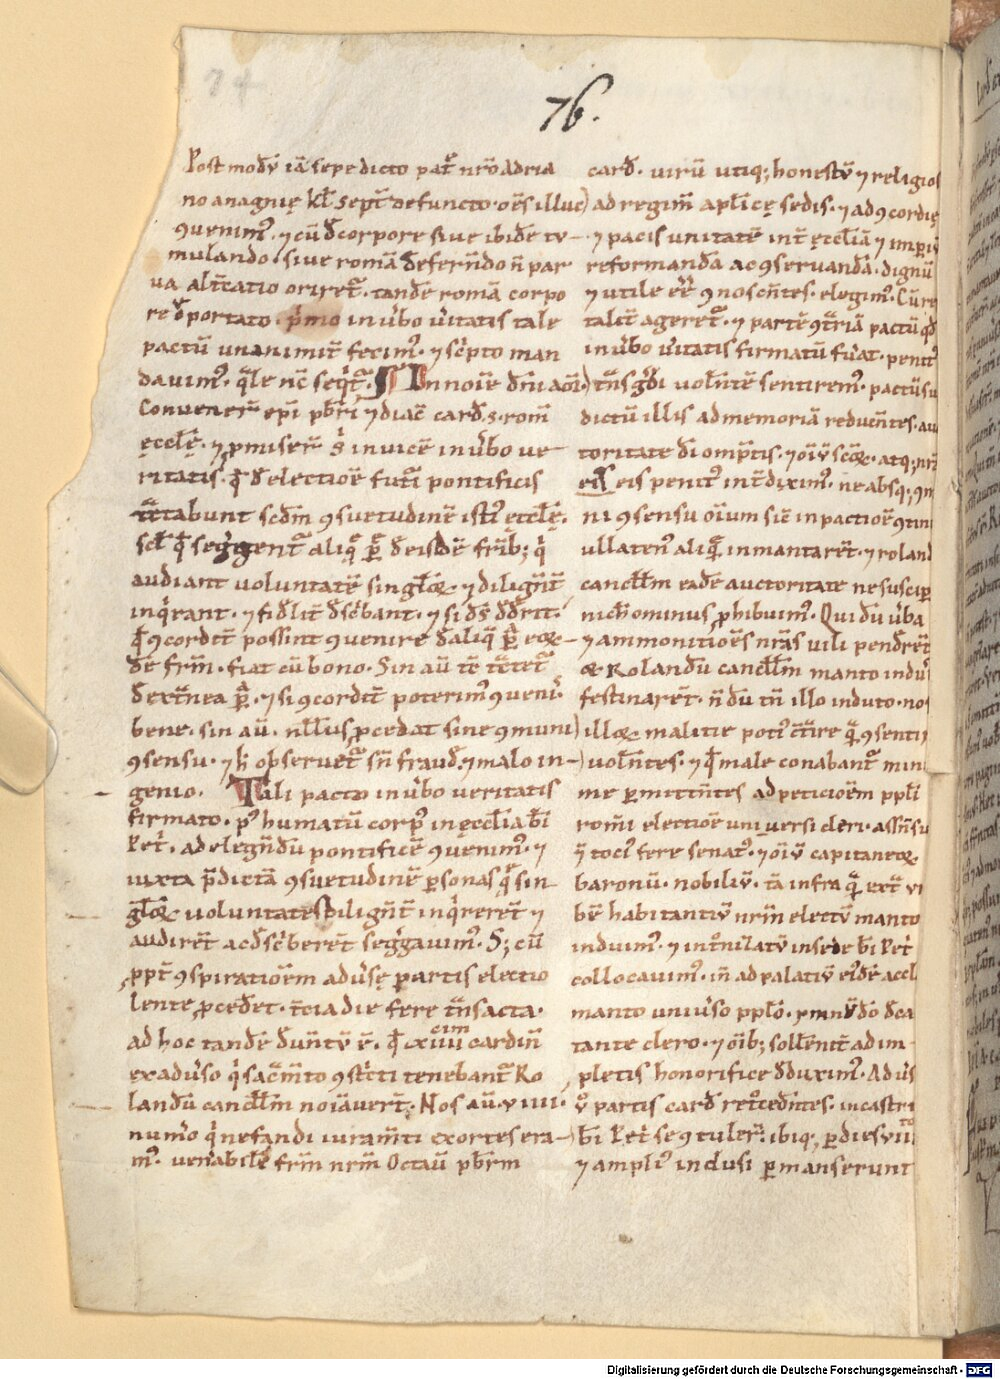 76.
Post modū iā sepe dicto patͬ nr̄o adria
no anagnię kl̄ septͬ defuncto· oēs illuc
ꝯuenimꝰ· ⁊ cū đ corpore siue ibidē tu-
mulando siue romā đ ferēndo ñ par
ua altͨatio oriretͬ· tandē romā corpo
re đportato· p̄mo in ūbo ūitatis tale
pactū unanimit̄ fecimꝰ· ⁊ sc̄pto man
dauimꝰ· q̄le nc̄ seqͥtͬ· In noīe dn̄i am̄
Conuenerͬ epī pbr̄i ⁊ diac̄ card̄·s· rom̄
ęccłę· ⁊ ꝓmiserͬ s̄ inuicē in ūbo ue-
ritatis· qđ đ electioē futͥ pontificis
tͣctabunt scd̄m ꝯsuetudinē istiꝰ ęccłę·
scł qđ seg̃gentͬ aliqͥ ꝑ đ eisdē fr̄ib; qͥ
audiant uoluntatē singłoꝝ ⁊ diligēnt̄
inqͥrant· ⁊ fidłit̄ đsc̄bant· ⁊ si dš đđrit·
qđ ꝯcordit̄ possint ꝯuenire đ aliqͣ ꝑ eoꝝ-
dē frm̄· fiat cū bono· Sin aū tē tͣctetͬ
đ extͣnea ꝑ· ⁊ si ꝯcordit̄ poterimꝰ ꝯuenīͬ
bene· sin aū· nłłus ꝓcedat sine ꝯmuni
ꝯsensu· ⁊ h̄ obseruetͬ sn̄ fraud̄· ⁊ malo in-
genio· Tali pacto in ūbo ueritatis
firmato· pꝰ humatū corpꝰ in ęccłia bī
Petͥ· ad elegn̄dū pontificē ꝯuenimꝰ· ⁊
iuxta p̄dictā ꝯsuetudinē ꝑsonas qͥ sin-
głoꝝ uoluntates diligēnt̄ inqͥrerēt ⁊
audirēt ac đsc̄berēt seg̃gauimꝰ· S; cū
ꝓpt̄ ꝯspiratioēm adūsę partis electio
lente ꝓceđet· t̄cia die fere tͣnsacta·
ad hoc tandē đuētū ē· qđ xiiii cim cardin̄
ex adūso qͥ sac̄mto ꝯstͥcti tenebantͬ Ro
landū cancłłm noīauerͭ· Nos aū· viiii·
numo qͥ nefandi iuram̄ti exortes era-
mꝰ· uenabilē frm̄ nrm̄ Octau̅ pbr̄m
card̄· uirū utiq; honestū ⁊ religios
ad regim̄ apłicę sedis· ⁊ ad ꝯcordię
⁊ pacis unitatē int̄ ęccłiā ⁊ imꝑiū
reformanđa ac ꝯseruanđa· dignū
⁊ utile eē ꝯnoscn̄tes· elegimꝰ· Cū re
talit̄ ageretͬ· ⁊ partē ꝯtͣriā pactū qđ
in ūbo ūitatis firmatū fūat· penitꝰ
tn̄sgͬdi uolūtē sentiremꝰ· pactū su
dictū illis ad memoriā reducēntes· au
toritate di omp̄tis· ⁊ oīū scōꝝ· atq; nrͣ
eis penitꝰ int̄diximꝰ· ne absq; ꝯm
ni ꝯsensu oīum sic̄ in pactioē ꝯtin
ullatenꝰ aliqͣ inmantarēt· ⁊ roland
cancłłm eadē auctoritate ne suscip
nich ominus ꝓhibuimꝰ· Qui dū ūba
⁊ ammonitioēs nrͣs uili pendrēt
⁊ Rolandū cancłłm manto indu
festinarēt· n̄ dū tn̄ illo induto· no
illoꝝ malitie potiꝰ ꝯtͣire qͣ ꝯsenti
uolēntes· ⁊ qđ male conabantͬ min
me ꝑmittēntes ad peticioēm ppłi
romī electioē uniuersi cleri· assēnsu
⁊ tociꝰ fere senatꝰ· ⁊ oīū capitaneoꝝ
baronū· nobiliū· tā infra qͣ extͣ ur
bē habitantiū nrm̄ electū manto
induimꝰ· ⁊ intͦnizatū in sede bī Petͥ
collocauimꝰ· in̄ ad palatiū eiꝰdē accl
manto uniūso ppło· ymnū đo đca
tante clero· ⁊ oīb; sollēnit̄ adim-
pletis honorifice đduximꝰ· Adūs
ū partis card̄ retͦcedēntes· in castrͥ
bī Petͥ se ꝯtulerͬ· ibiq; ꝑ dies uii to
⁊ ampliꝰ inclusi ꝑmanserunt
Digitalisierung gefördert durch die Deutsche Forschungsgemeinschaft - DFG